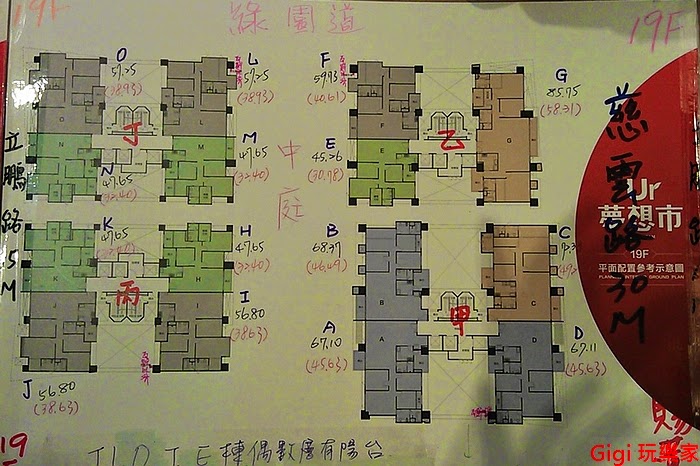 19F
綠園道
19F
O
57.25
(38.93)
L
57.25
(38.93)
F
59.93
(40.61)
G
85.75
(58.31)
丁
乙
N
47.65
(32.40)
M
47.65
(32.40)
E
45.26
(30.78)
中庭
立鵬路15M
慈雲路30M
K
47.65
(32.40)
H
47.65
(32.40)
B
68.37
(46.49)
C
丙
甲
I
56.80
(38.63)
A
67.10
(45.63)
D
67.11
(45.63)
J
56.80
(38.63)
O
L
F
G
N
M
E
K
H
B
C
J
I
A
D
Ur
夢想市
19F
平面配置參考示意圖
19
棟偶數層有陽台
Gigi 玩樂家